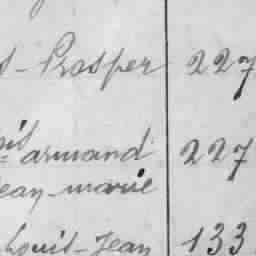 -Prosper 227
armand 227
jean-marie
Louis-Jean 133